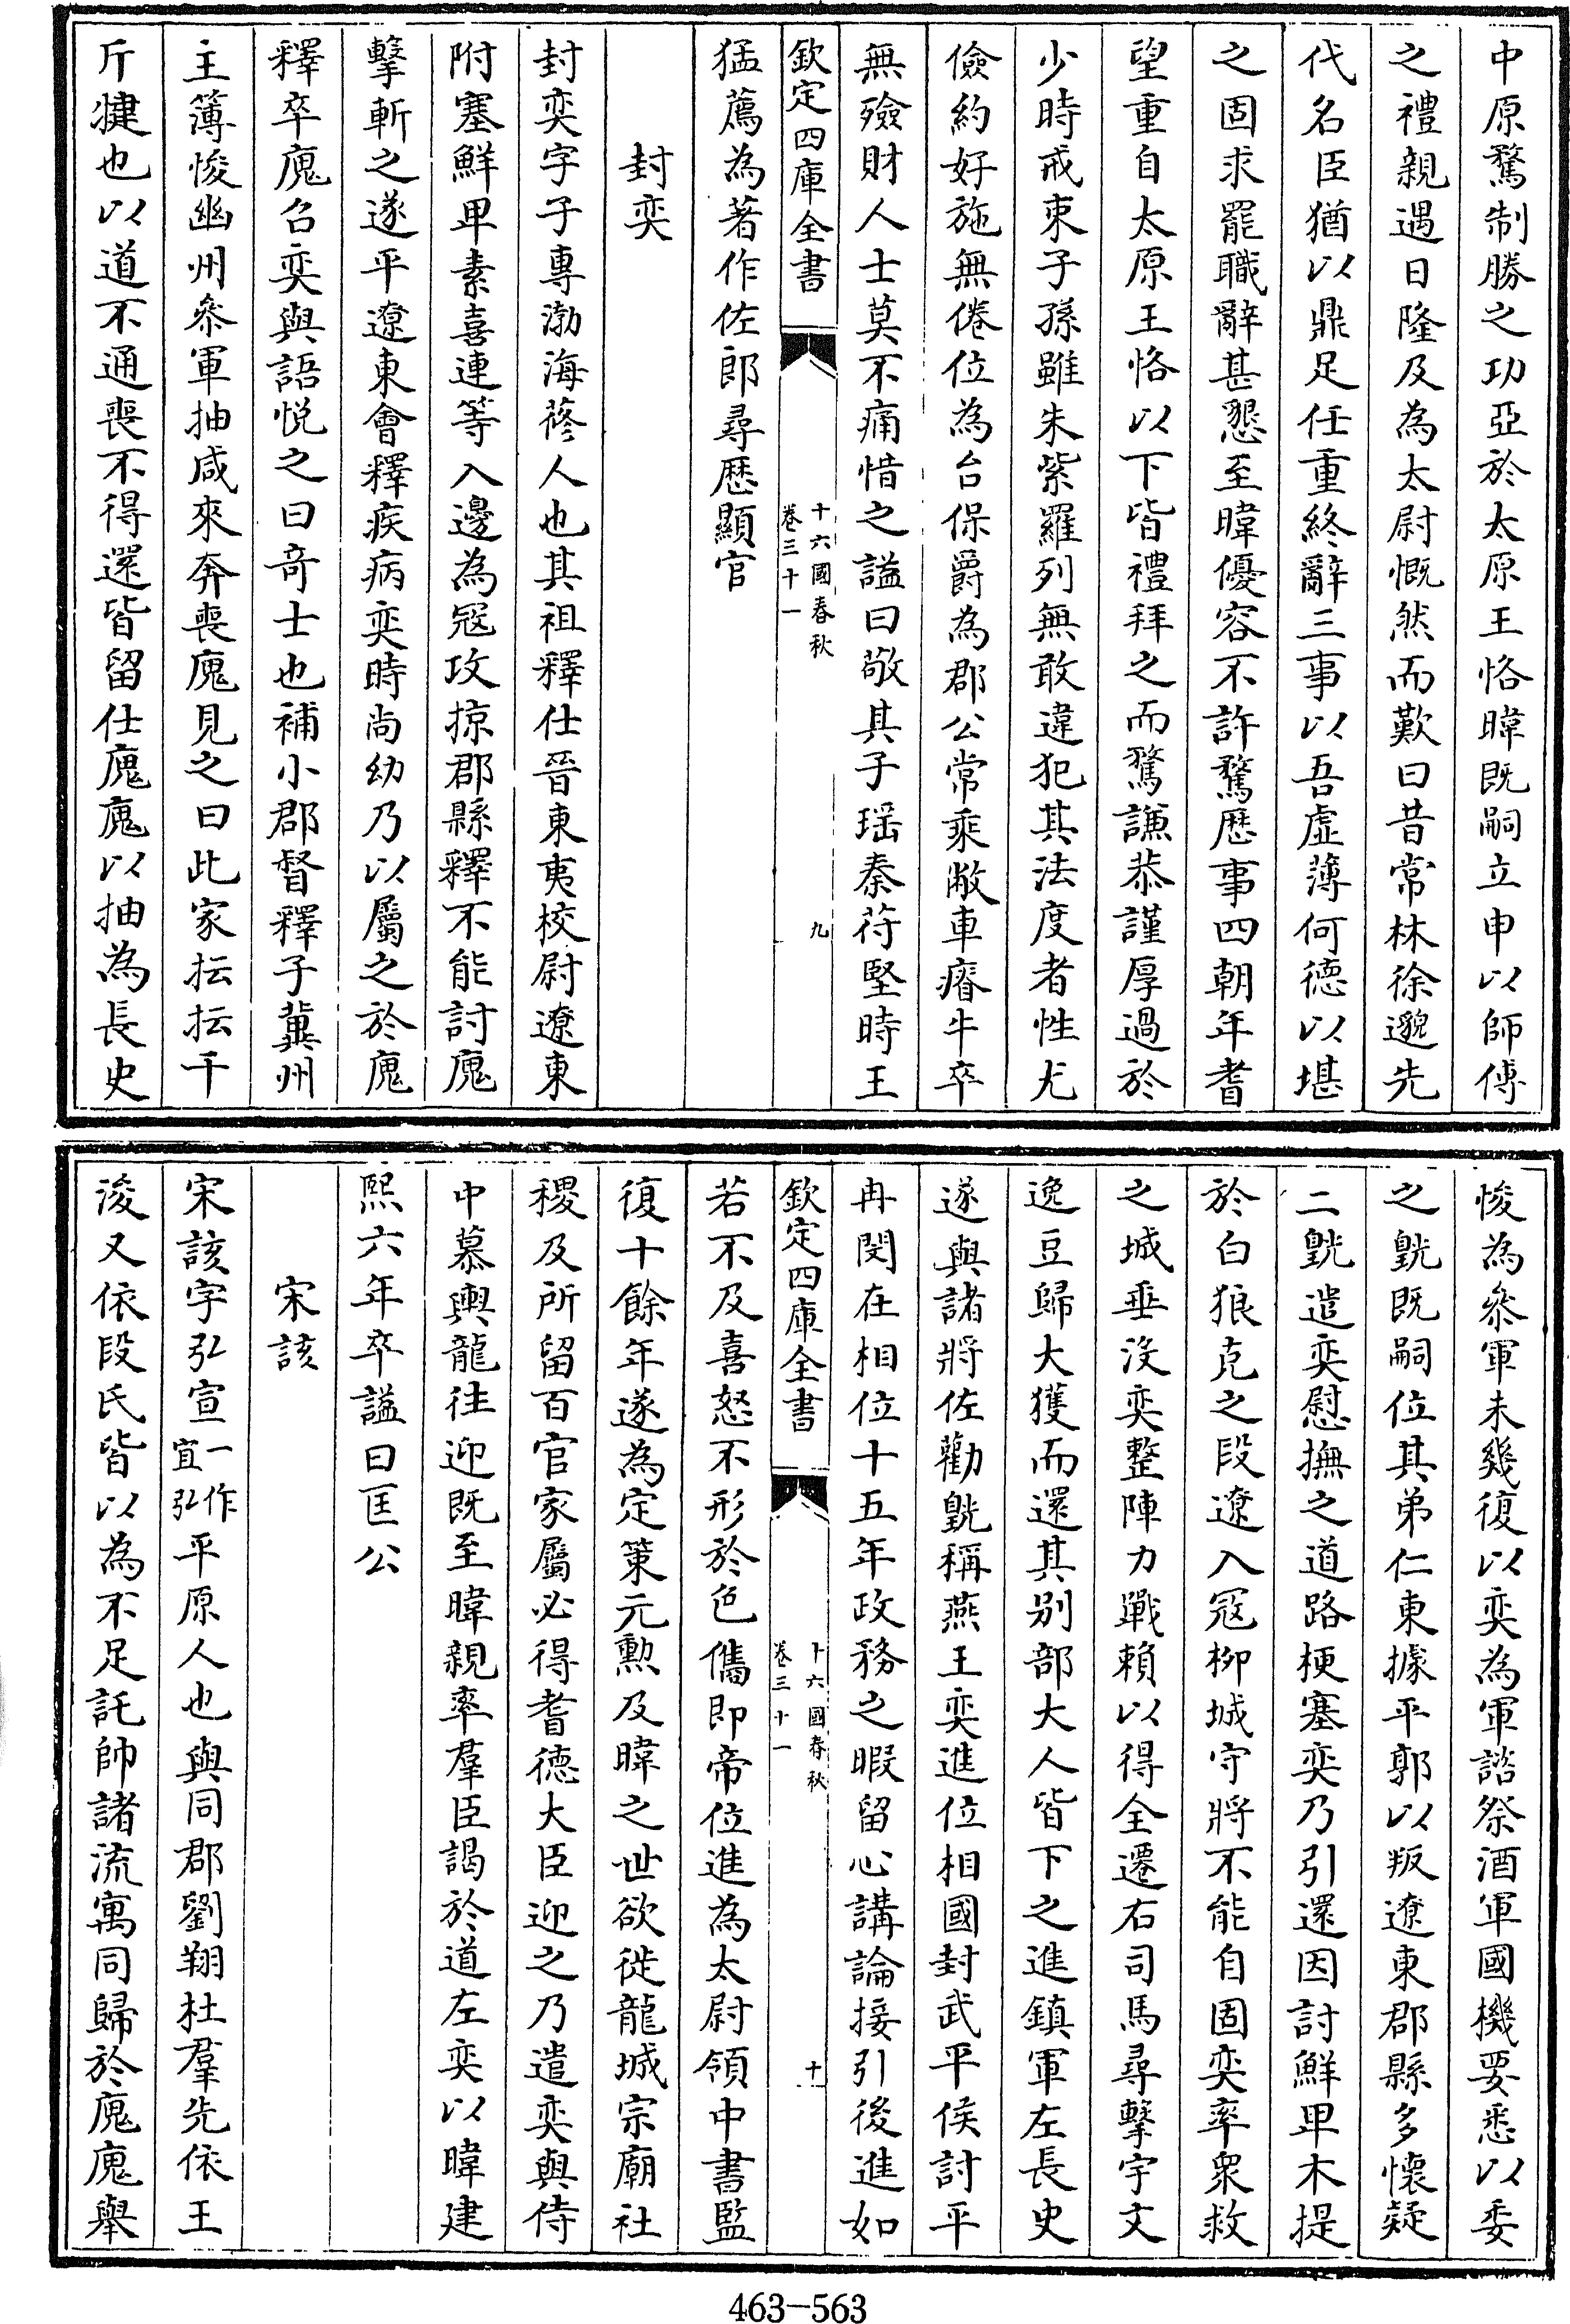 中原騖制勝之功亞於太原王恪暐既嗣立申以師傅
之禮親遇日隆及為太尉慨然而歎曰昔常林徐邈先
代名臣猶以鼎足任重終辭三事以吾虛薄何德以堪
之固求罷職辭甚懇至暐優容不許騖歷事四朝年耆
望重自太原王恪以下皆禮拜之而騖謙恭謹厚過於
少時戒束子孫雖朱紫羅列無敢違犯其法度者性尤
儉約好施無倦位為台保爵為郡公常乘敝車瘠牛卒
無殮財人士莫不痛惜之諡曰敬其子瑶秦苻堅時王
欽定四庫全書
十六國春秋
卷三十一
九
猛薦為著作佐郎尋歷顯官
封奕
封奕字子專渤海蓨人也其祖釋仕晉東夷校尉遼東
附塞鮮卑素喜連等入邊為冦攻掠郡縣釋不能討廆
擊斬之遂平遼東會釋疾病奕時尚幼乃以屬之於廆
釋卒廆召奕與語悅之曰竒士也補小郡督釋子冀州
主簿悛幽州叅軍抽咸來奔喪廆見之曰此家抎抎千
斤犍也以道不通喪不得還皆留仕廆廆以抽為長史
悛為叅軍未幾復以奕為軍諮祭酒軍國機要悉以委
之皝既嗣位其弟仁東據平郭以叛遼東郡縣多懷疑
二皝遣奕慰撫之道路梗塞奕乃引還因討鮮卑木提
於白狼克之段遼入冦柳城守將不能自固奕率衆救
之城垂沒奕整陣力戰賴以得全遷右司馬尋擊宇文
逸豆歸大獲而還其别部大人皆下之進鎮軍左長史
遂與諸將佐勸皝稱燕王奕進位相國封武平侯討平
冉閔在相位十五年政務之暇留心講論接引後進如
欽定四庫全書
十六國春秋
卷三十一
十
若不及喜怒不形於色儁即帝位進為太尉領中書監
復十餘年遂為定策元勲及暐之世欲徙龍城宗廟社
稷及所留百官家屬必得耆德大臣迎之乃遣奕與侍
中慕輿龍往迎既至暐親率羣臣謁於道左奕以暐建
熙六年卒諡曰匡公
宋該
宋該字弘宣一作宜弘平原人也與同郡劉翔杜羣先依王
浚又依段氏皆以為不足託帥諸流寓同歸於廆廆舉
463-563